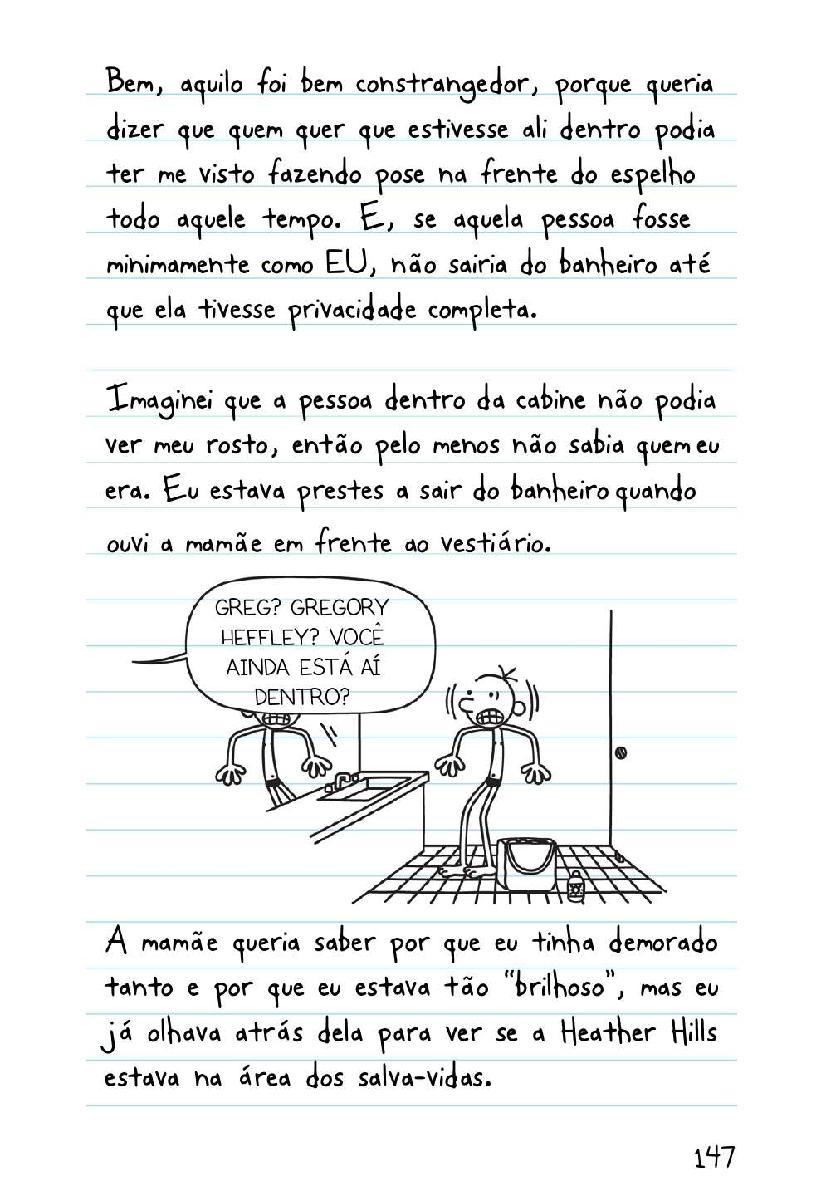 Bem, aquilo foi bem constrangedor, porque queria
dizer que quem quer que estivesse ali dentro podia
ter me visto fazendo pose na frente do espelho
todo aquele tempo. E, se aquela pessoa fosse
minimamente como EU, não sairia do banheiro até
que ela tivesse privacidade completa.
Imaginei que a pessoa dentro da cabine não podia
ver meu rosto, então pelo menos não sabia quem eu
era. Eu estava prestes a sair do banheiro quando
ouvi a mamãe em frente ao vestiário.
GREG? GREGORY
HEFFLEY? VOCÊ
AINDA ESTÁ AÍ
DENTRO?
A mamãe queria saber por que eu tinha demorado
tanto e por que eu estava tão "brilhoso", mas eu
já olhava atrás dela para ver se a Heather Hills
estava na área dos salva-vidas.
147